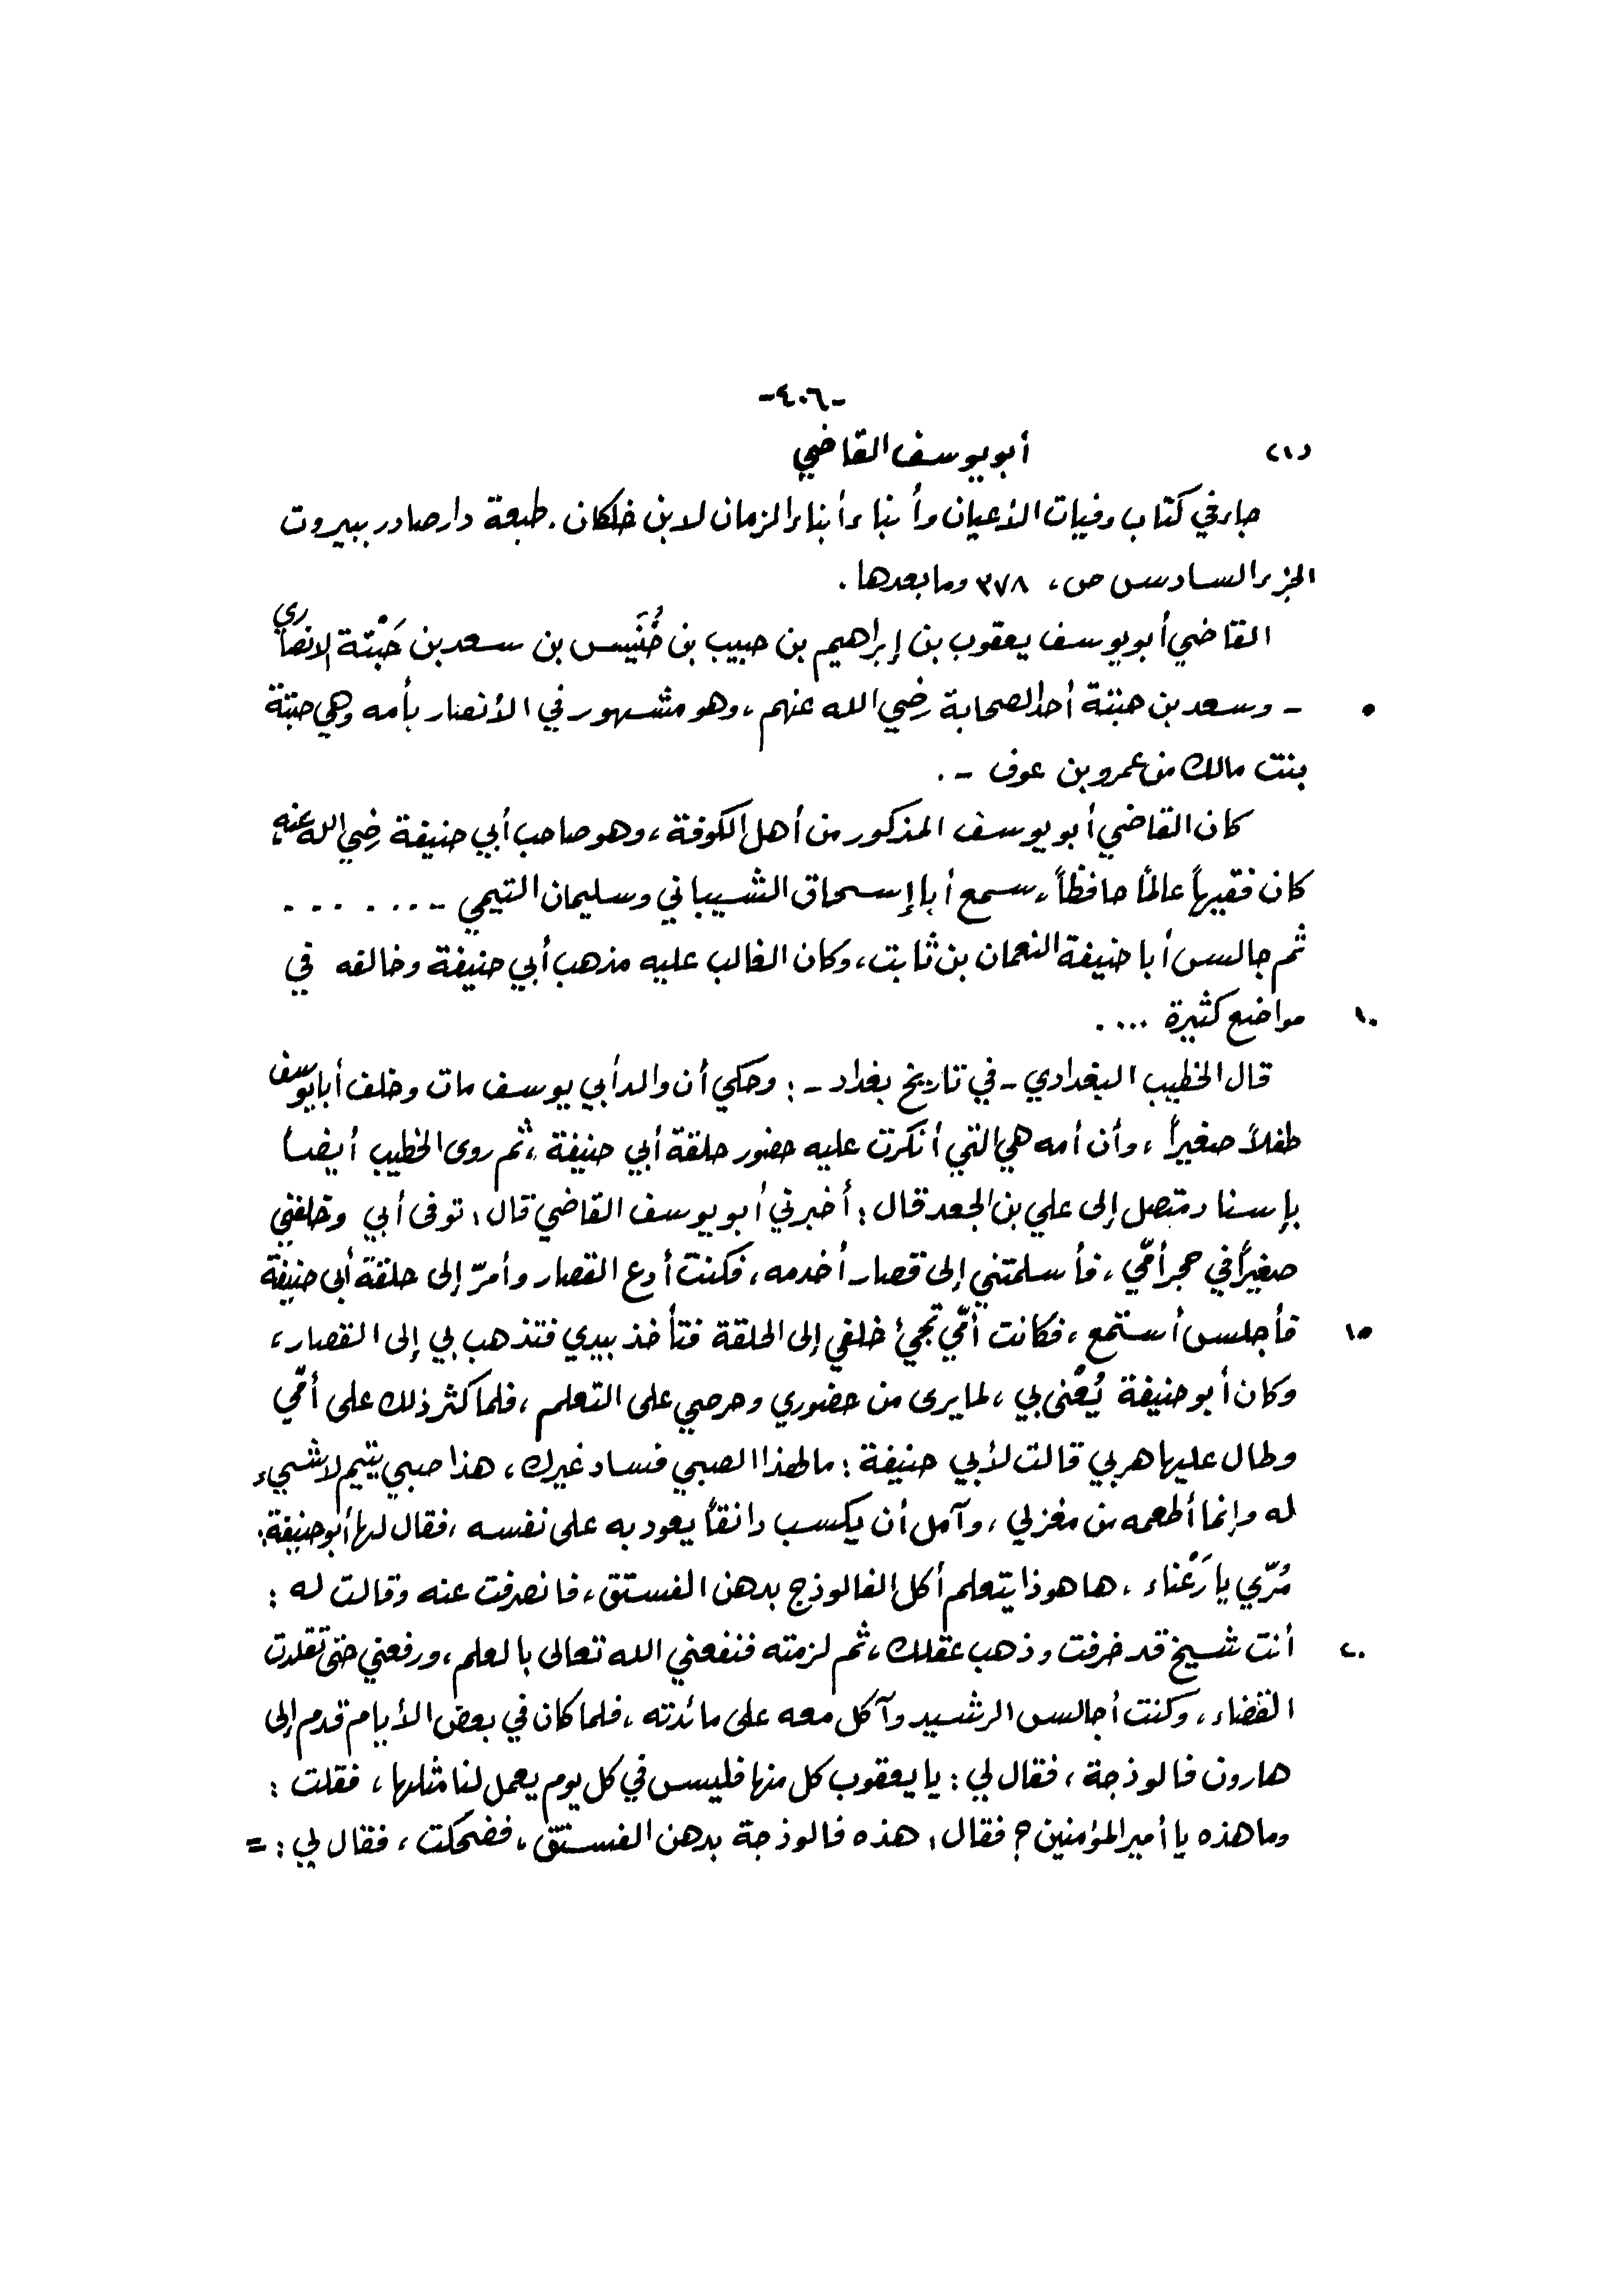 -٤٠٦-
(١) أبو يوسف القاضي
جاء في كتاب وفيات الأعيان وأنباء أبناء الزمان لابن خلكان. طبعة دار صادر ببيروت
الجزء السادس ص، ٣٧٨ وما بعدها.
القاضي أبو يوسف يعقوب بن إبراهيم بن حبيب بن خُنَيس بن سعد بن حَبْتَة الانصاري
٥ - وسعد بن حبتة أحد الصحابة رضي الله عنهم، وهو مشهور في الأنصار بأمه وهي حبتة
بنت مالك من عمرو بن عوف -.
كان القاضي أبو يوسف المذكور من أهل الكوفة، وهو صاحب أبي حنيفة رضي الله عنه،
كان فقيهاً عالماً حافظاً، سمع أبا إسحاق الشيباني وسليمان التيمي - ... . . . .
ثم جالس أبا حنيفة النعمان بن ثابت، وكان الغالب عليه مذهب أبي حنيفة وخالفه في
١٠ مواضع كثيرة ....
قال الخطيب البغدادي - في تاريخ بغداد -: وحكي أن والد أبي يوسف مات وخلف أبا يوسف
طفلاً صغيراً، وأن أمه هي التي أنكرت عليه حضور حلقة أبي حنيفة، ثم روى الخطيب أيضاً
بإسناد متصل إلى علي بن الجعد قال: أخبرني أبو يوسف القاضي قال: توفى أبي وخلفني
صغيراً في حجر أمّي، فأسلمتني إلى قصار أخدمه، فكنت أدع القصار وأمرّ إلى حلقة أبى حنيفة
١٥ فأجلس أستمع، فكانت أمّي تجيئ خلفي إلى الحلقة فتأخذ بيدي فتذهب بي إلى القصار،
وكان أبو حنيفة يُعْنى بي، لما يرى من حضوري وحرصي على التعلم، فلما كثر ذلك على أمّي
وطال عليها هربي قالت لأبي حنيفة: ما لهذا الصبي فساد غيرك، هذا صبي يتيم لا شيء
له وإنما أطعمه من مغزلي، وآمل أن يكسب دانقاً يعود به على نفسه، فقال لها أبو حنيفة:
مُرّي يا رَعْناء، ها هو ذا يتعلم أكل الفالوذج بدهن الفستق، فانصرفت عنه وقالت له:
٢٠ أنت شيخ قد خرفت وذهب عقلك، ثم لزمته فنفعني الله تعالى بالعلم، ورفعني حتى تقلدت
القضاء، وكنت أجالس الرشيد وآكل معه على مائدته، فلما كان في بعض الأيام قدم إلى
هارون فالوذجة، فقال لي: يا يعقوب كل منها فليس في كل يوم يعمل لنا مثلها، فقلت:
وما هذه يا أمير المؤمنين؟ فقال: هذه فالوذجة بدهن الفستق، فضحكت، فقال لي: =